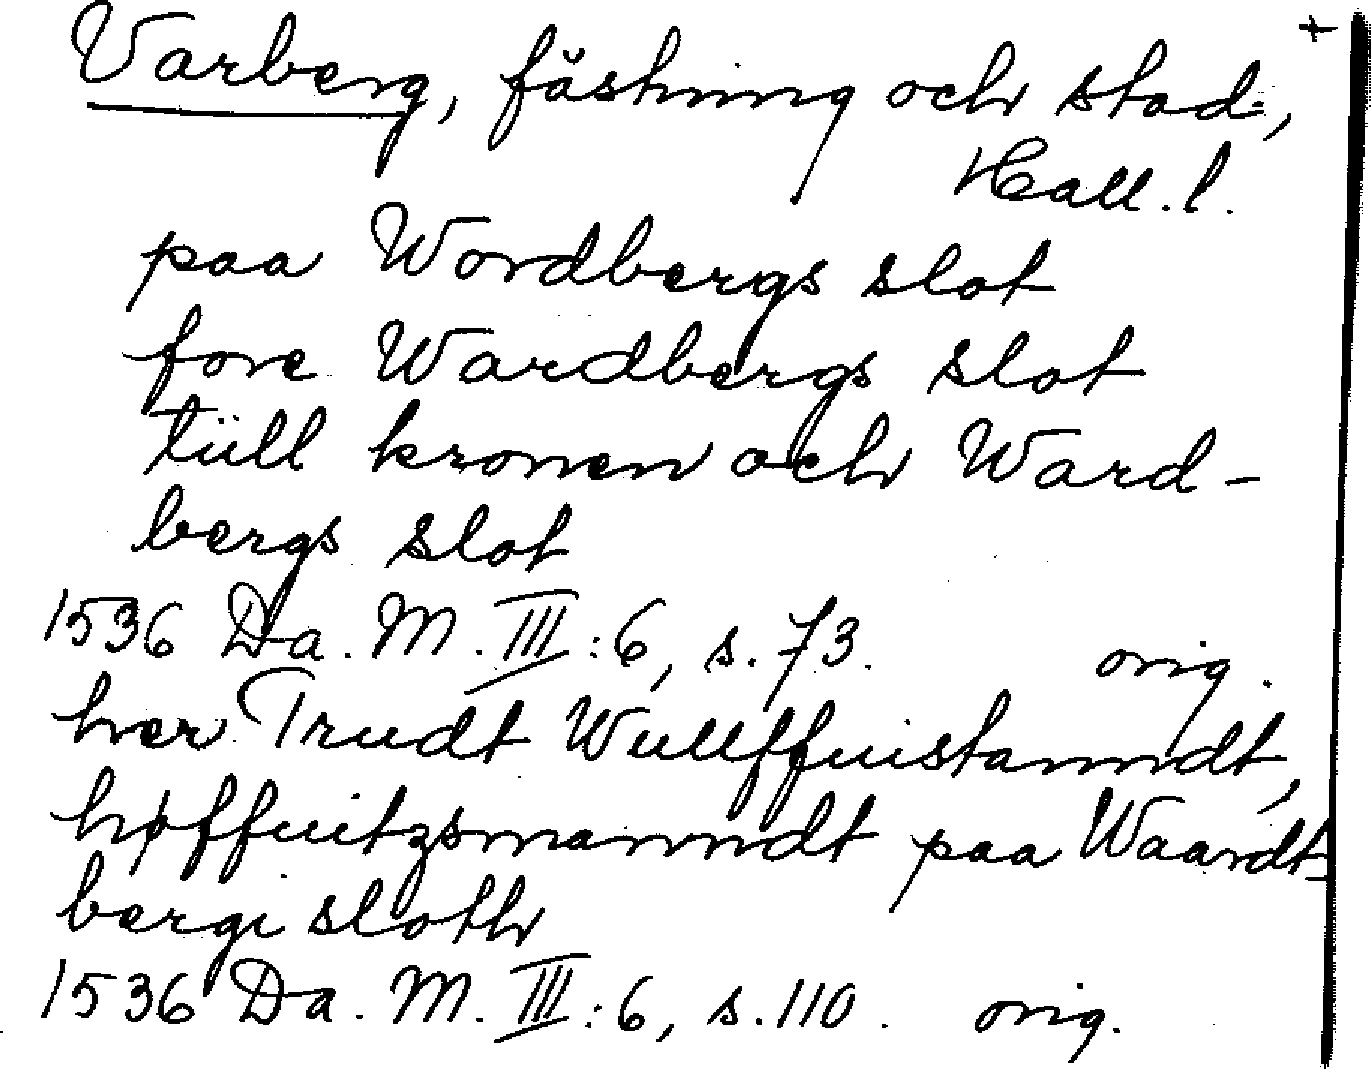 Varberg, fästning och stad, +
Hall. l.
paa Wordbergs slot
fore Wardbergs slot
tüll kronen och Ward-
bergs slot
1536 Da. M. III:6, s. 73. orig.
her Trudt Wullffuistanndt,
høffuitzsmanndt paa Waardt-
bergi sloth
1536 Da. M. III:6, s. 110. orig.